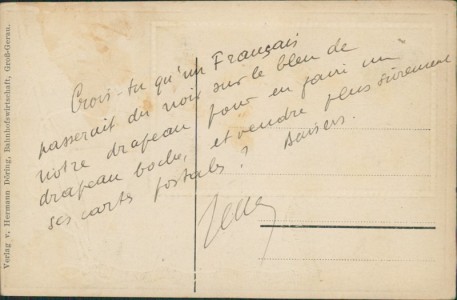 Crois-tu qu'un Français
passerait du noir sur le bleu de
notre drapeau pour en faire un
drapeau boche, et vendre plus sûrement
ses cartes postales ? Baisers.
Verlag v. Hermann Döring, Bahnhofswirtschaft, Groß-Gerau.